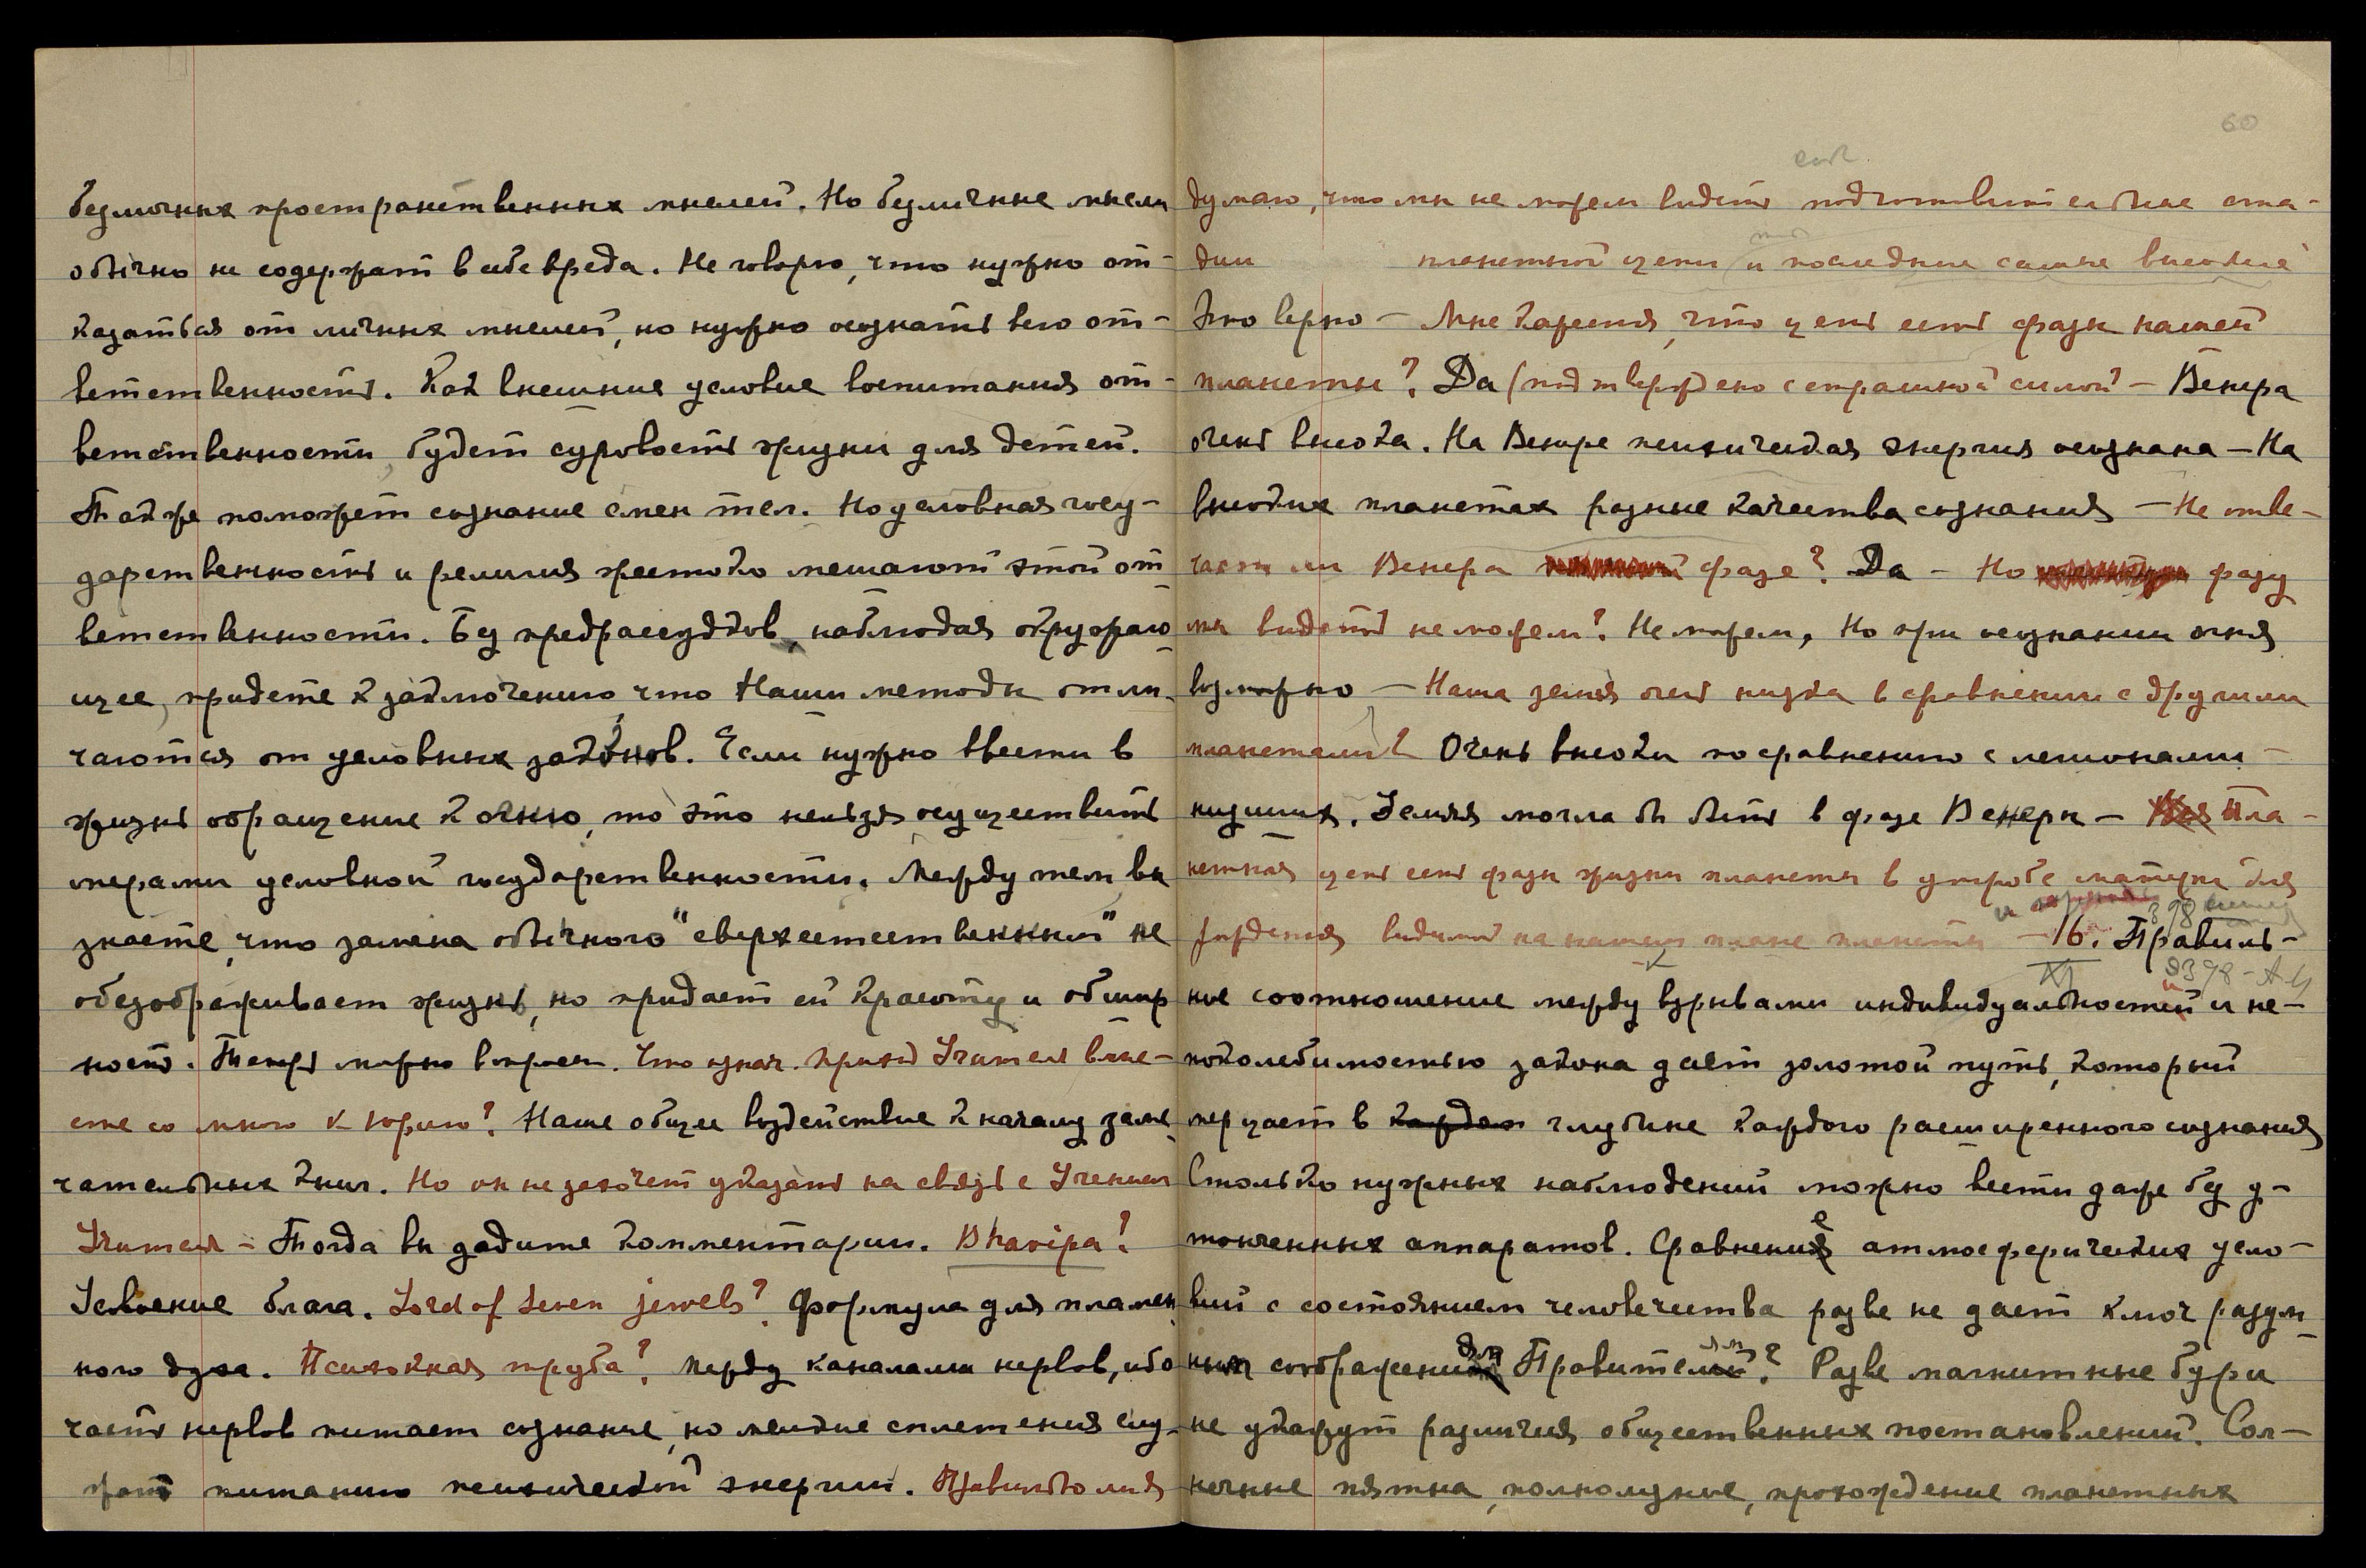 безличных пространственных мыслей. Но безличные мысли
обычно не содержат в себе вреда. Не говорю, что нужно от-
казаться от личных мыслей, но нужно осознать всю от-
ветственность. Как внешние условие воспитания от-
ветственности будет суровость жизни для детей.
Также поможет сознание смен тел. Но условная госу-
дарственность и религия жестоко мешают этой от-
ветственности. Без предрассудков, наблюдая окружаю-
щее, придете к заключению, что Наши методы отли-
чаются от условных законов. Если нужно ввести в
жизнь обращение к огню, то это нельзя осуществить
мерами условной государственности. Между тем вы
знаете, что замена обычного "сверхестественным" не
обезображивает жизнь, но придает ей красоту и обшир-
ность. Теперь можно вопрос. Что знач. приход Учителя вме-
сте со мною к Юрию? Наше общее воздействие к началу заме-
чательных книг. Но он не захочет указать на связь с Учением
Учителя - Тогда вы дадите комментарии. Bhavipa?
Усвоение блага. Lord of Seven jewels? Формула для пламен-
ного духа. Психожная труба? Между каналами нервов, ибо
часть нервов питает сознание, но мелкие сплетения слу-
жат питанию психической энергии. Правильно ли я
60
думаю, что мы не можем видеть подготовительные ста-
дии планетной цепи и последние самые высокие
Это верно - Мне кажется, что цепь есть фазы нашей
планеты? Да (подтверждено с страшной силой - Венера
очень высока. На Венере психическая энергия осознана - На
высоких планетах разные качества сознания - Не отве-
чает ли Венера фазе? Да - Но фазу
мы видеть не можем? Не можем, Но при осознании огня
возможно - Наша земля очень низка в сравнении с другими
планетами? Очень высоки по сравнению с легионами
низших. Земля могла бы быть в фазе Венеры - Пла-
нетная цепь есть фазы жизни планеты в утробе матери для
рождения видимой на нашем плане планеты - 16. Правиль-
ные соотношение между взрывами индивидуальности и не-
поколебимостью закона дает золотой путь, который
мерцает в каждом глубине каждого расширенного сознания
Столько нужных наблюдений можно вести даже без у-
тонченных аппаратов. Сравнение атмосферических усло-
вий с состоянием человечества разве не дает ключ разум-
ным соображений для Правителям? Разве магнитные бури
не укажут различия общественных постановлений. Сол-
нечные пятна, полнолуние, прохождение планетных